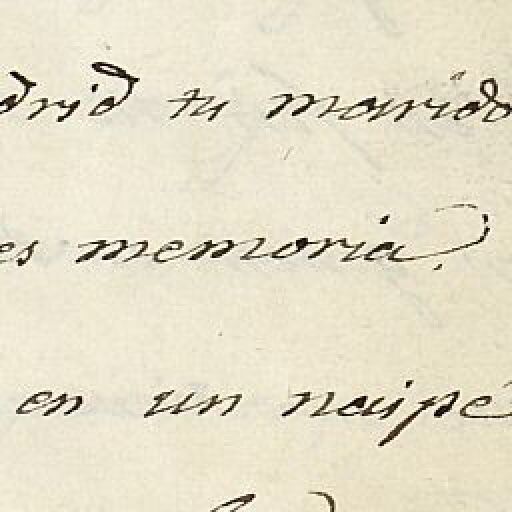 drid tu marido
es memoria?
en un naipe